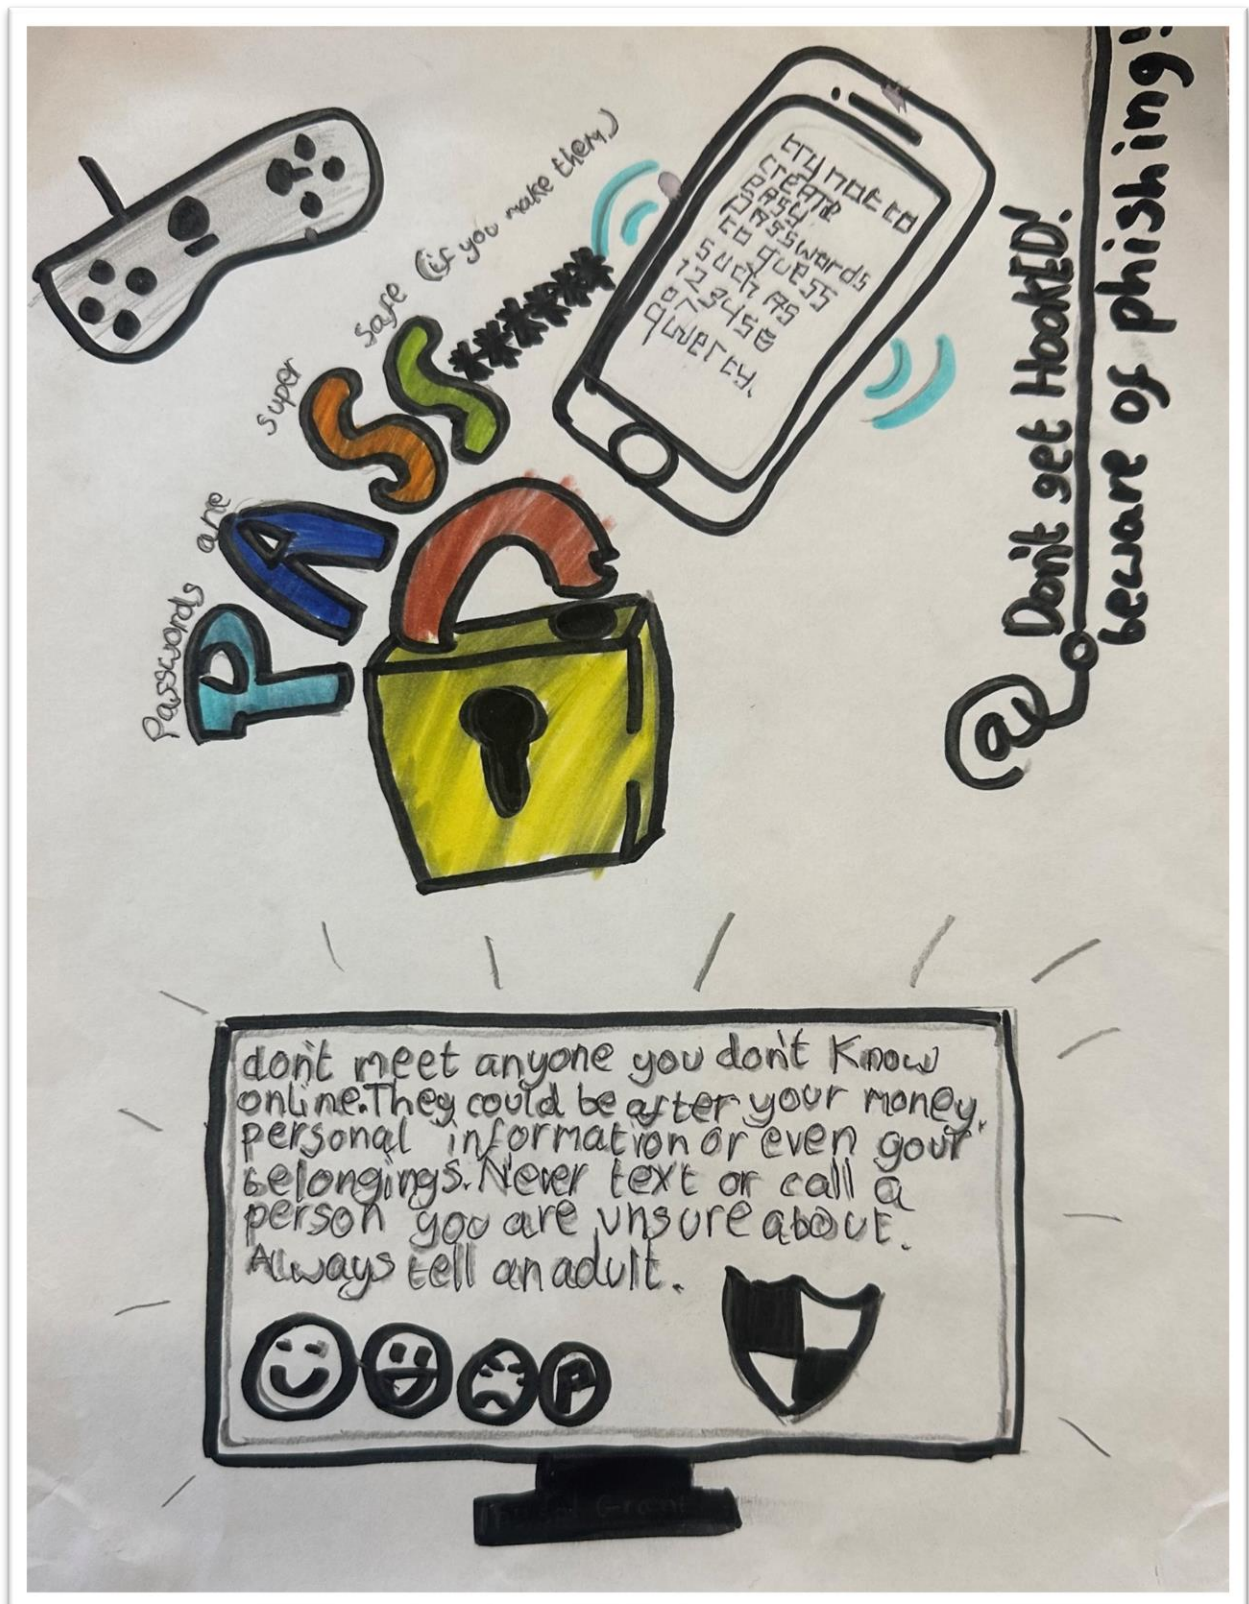 Passwords are super safe (if you make them)
PASS*******
try not to
create
easy
passwords
to guess
such as
123456
or
qwerty.
Don't get HooKED!
beware of phishing!
@
don't meet anyone you don't Know
online.They could be after your money,
personal information or even your
belongings. Never text or call a
person you are unsure about.
Always tell an adult.